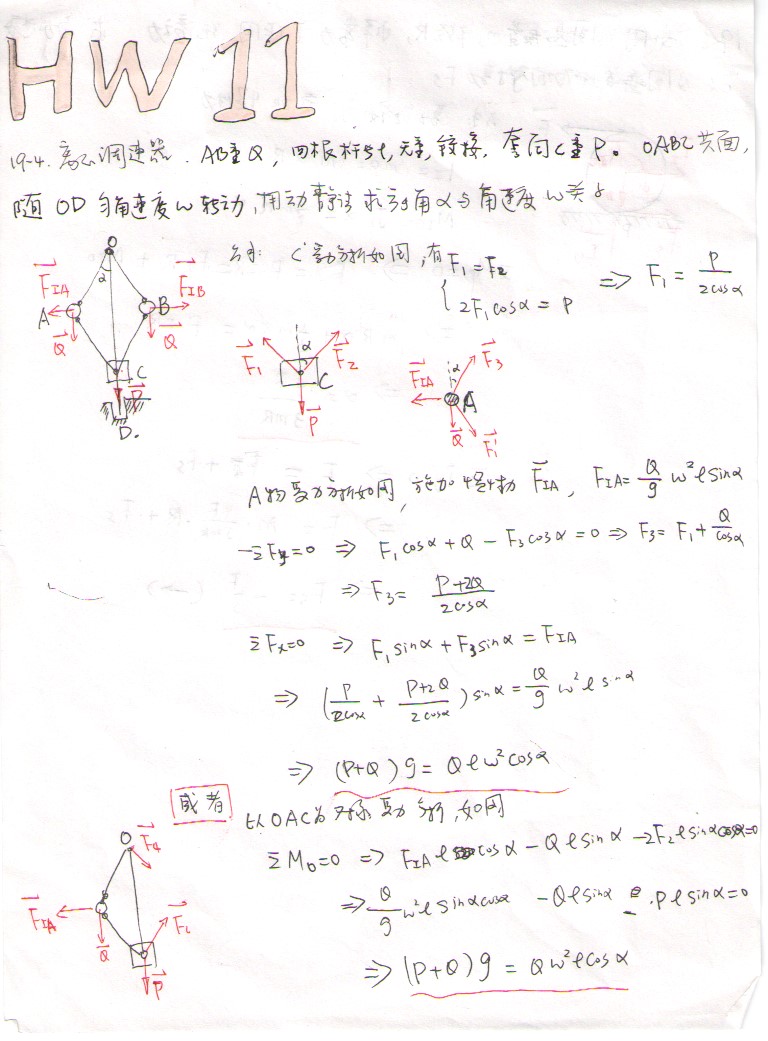 HW 11
19-4. 离心调速器. AB重Q, 四根杆长l, 无重, 铰接, 套筒C重P。 OABC共面,
随 OD 匀角速度ω转动, 用动静法 求 角α与角速度ω关
C受力分析如图, 有 { F₁ = F₂
2F₁cosα = P
⇒ F₁ = P/2cosα
O
α
F_IA
F_IB
A
B
Q
Q
C
P
D.
α
F₁
F₂
C
P
α
F₃
F_IA
A
Q
F₁'
A物受力分析如图, 施加惯性力 F_IA, F_IA = Q/g ω²lsinα
ΣFy=0 ⇒ F₁cosα + Q − F₃cosα = 0 ⇒ F₃ = F₁ + Q/cosα
⇒ F₃ = P+2Q/2cosα
ΣFx=0 ⇒ F₁sinα + F₃sinα = F_IA
⇒ (P/2cosα + P+2Q/2cosα) sinα = Q/g ω²l sinα
⇒ (P+Q)g = Qlω²cosα
或者
以OAC为对象受力分析, 如图
ΣM₀=0 ⇒ F_IA l cosα − Qlsinα − 2F₂lsinαcosα=0
⇒ Q/g ω²lsinαcosα − Qlsinα − Plsinα=0
⇒ (P+Q)g = Qω²lcosα
O
F₄
F_IA
Q
F₂
P